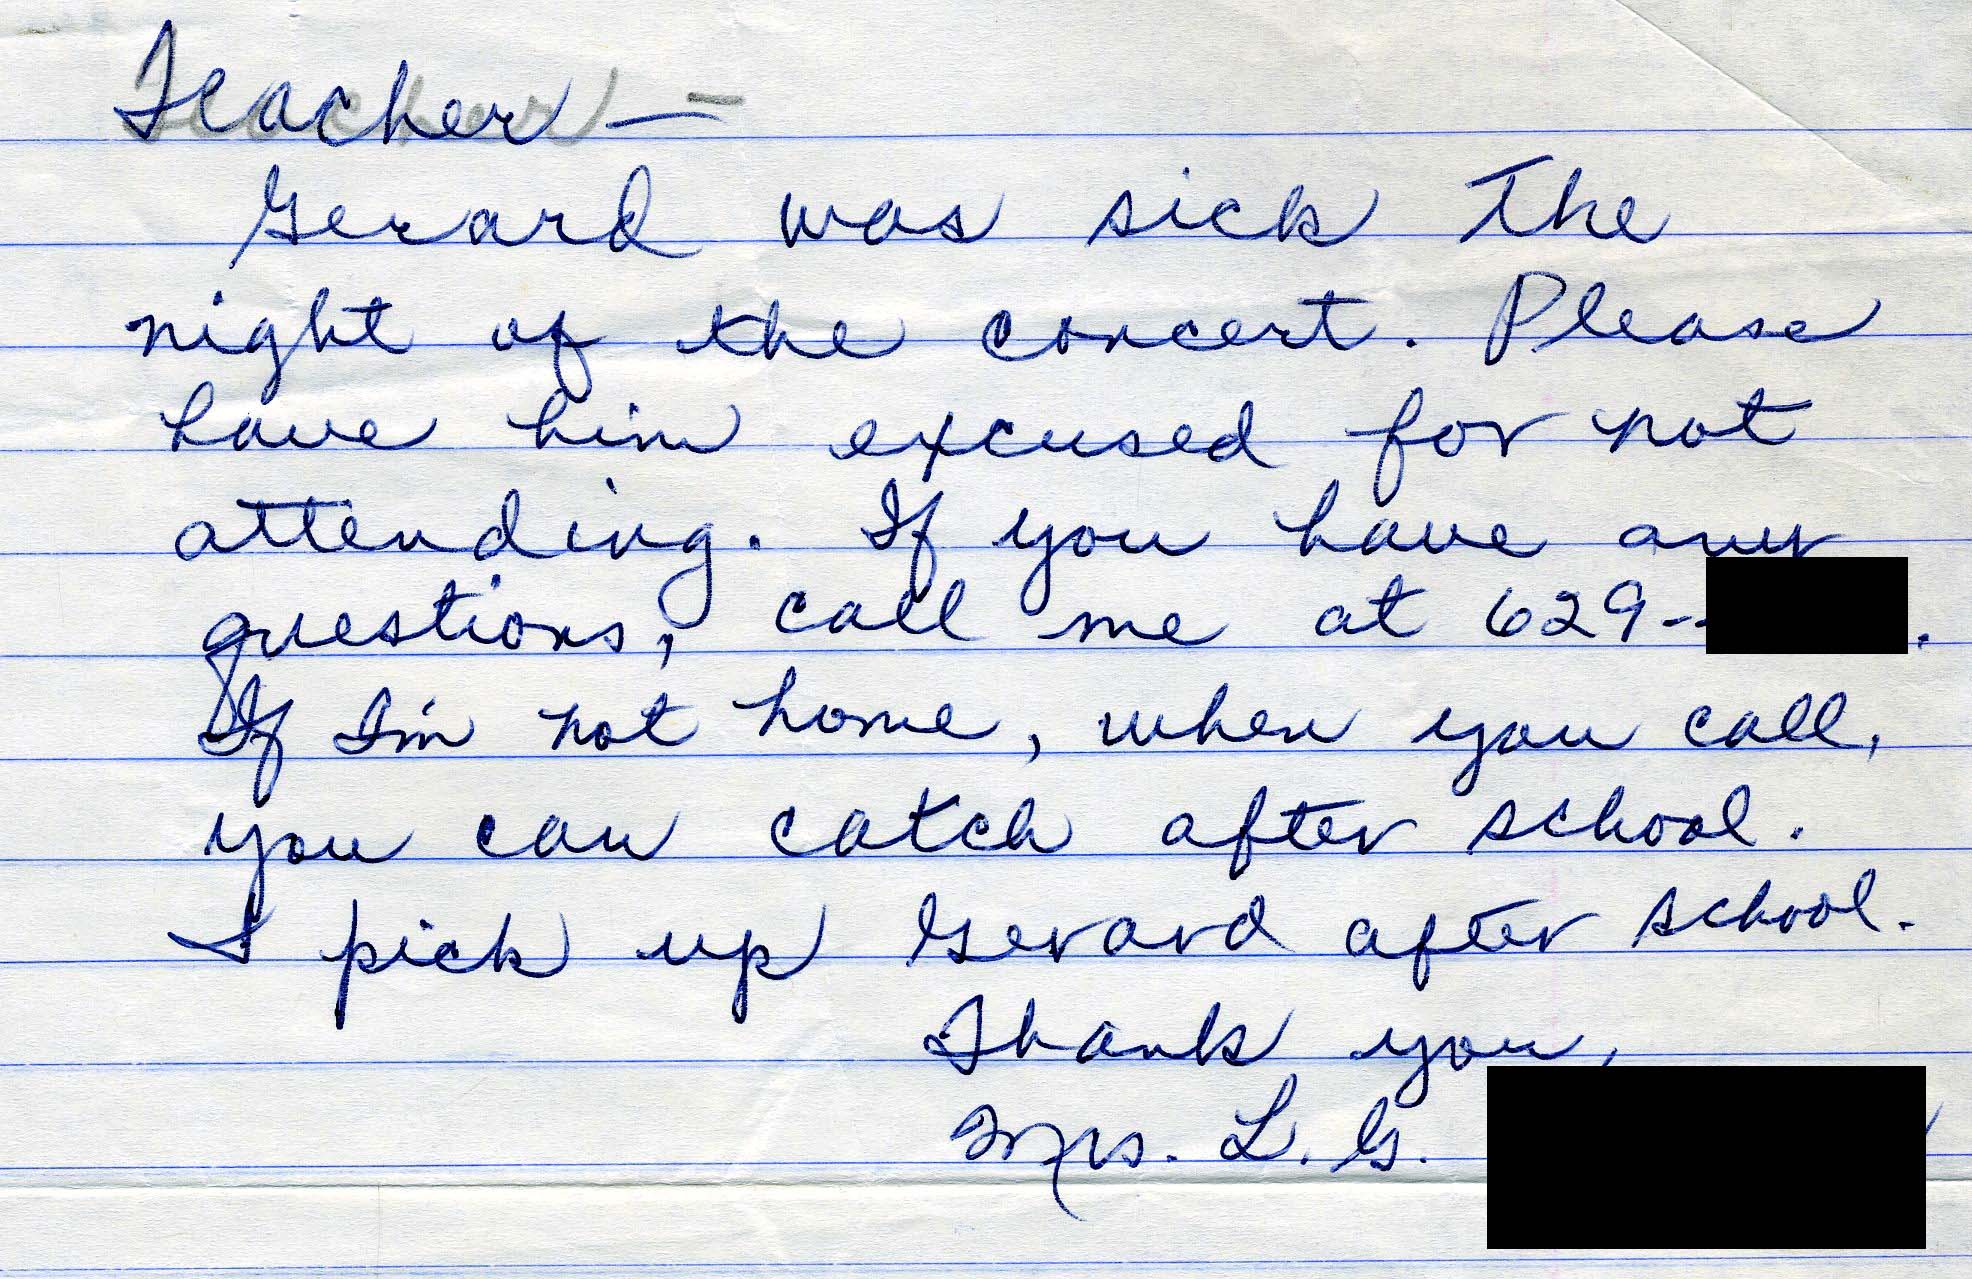 Teacher —
Gerard was sick the
night of the concert. Please
have him excused for not
attending. If you have any
questions, call me at 629-
If I'm not home, when you call,
you can catch after school.
I pick up Gerard after school.
Thank you,
Mrs. L. G.